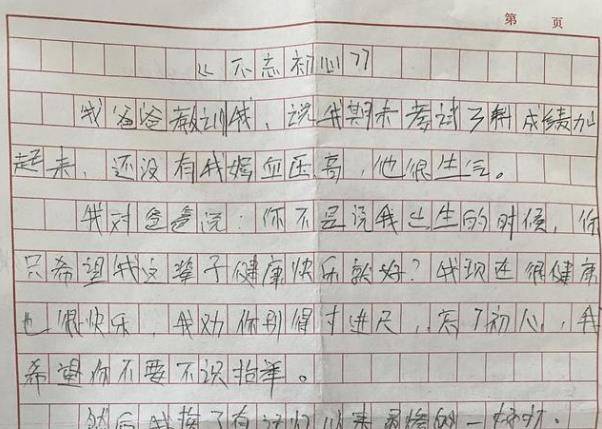 第 页
《不忘初心》
我爸爸教训我，说我期末考试3科成绩加
起来，还没有我妈血压高，他很生气。
我对爸爸说：你不是说我出生的时候，你
只希望我这辈子健康快乐就好？我现在很健康
也很快乐，我劝你别得寸进尺，忘了初心，我
希望你不要不识抬举。
然后我挨了有记忆以来最惨的一次打。